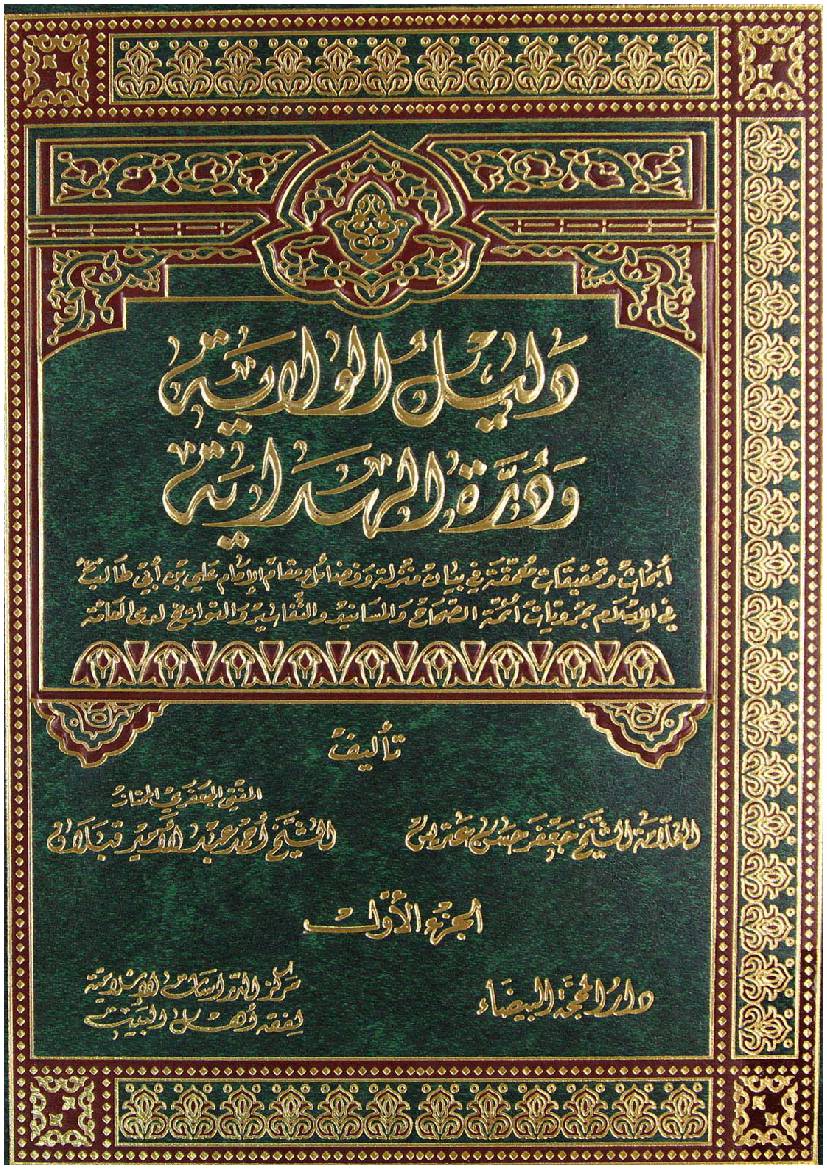 دليل الولاية
ودرة الهداية
أبحاث وتحقيقات محققة في بيان منزلة وفضائل ومقام الإمام علي بن أبي طالب ع
في الإسلام بمرويات أئمة الصحاح والمسانيد والتفاسير والتواريخ لدى العامة
تأليف
العلامة الشيخ جعفر حسن عتريس
المفتي الجعفري الممتاز
الشيخ أحمد عبد الأمير قبلان
الجزء الأول
دار المحجة البيضاء
مركز الدراسات الإسلامية
لفقه أهل البيت